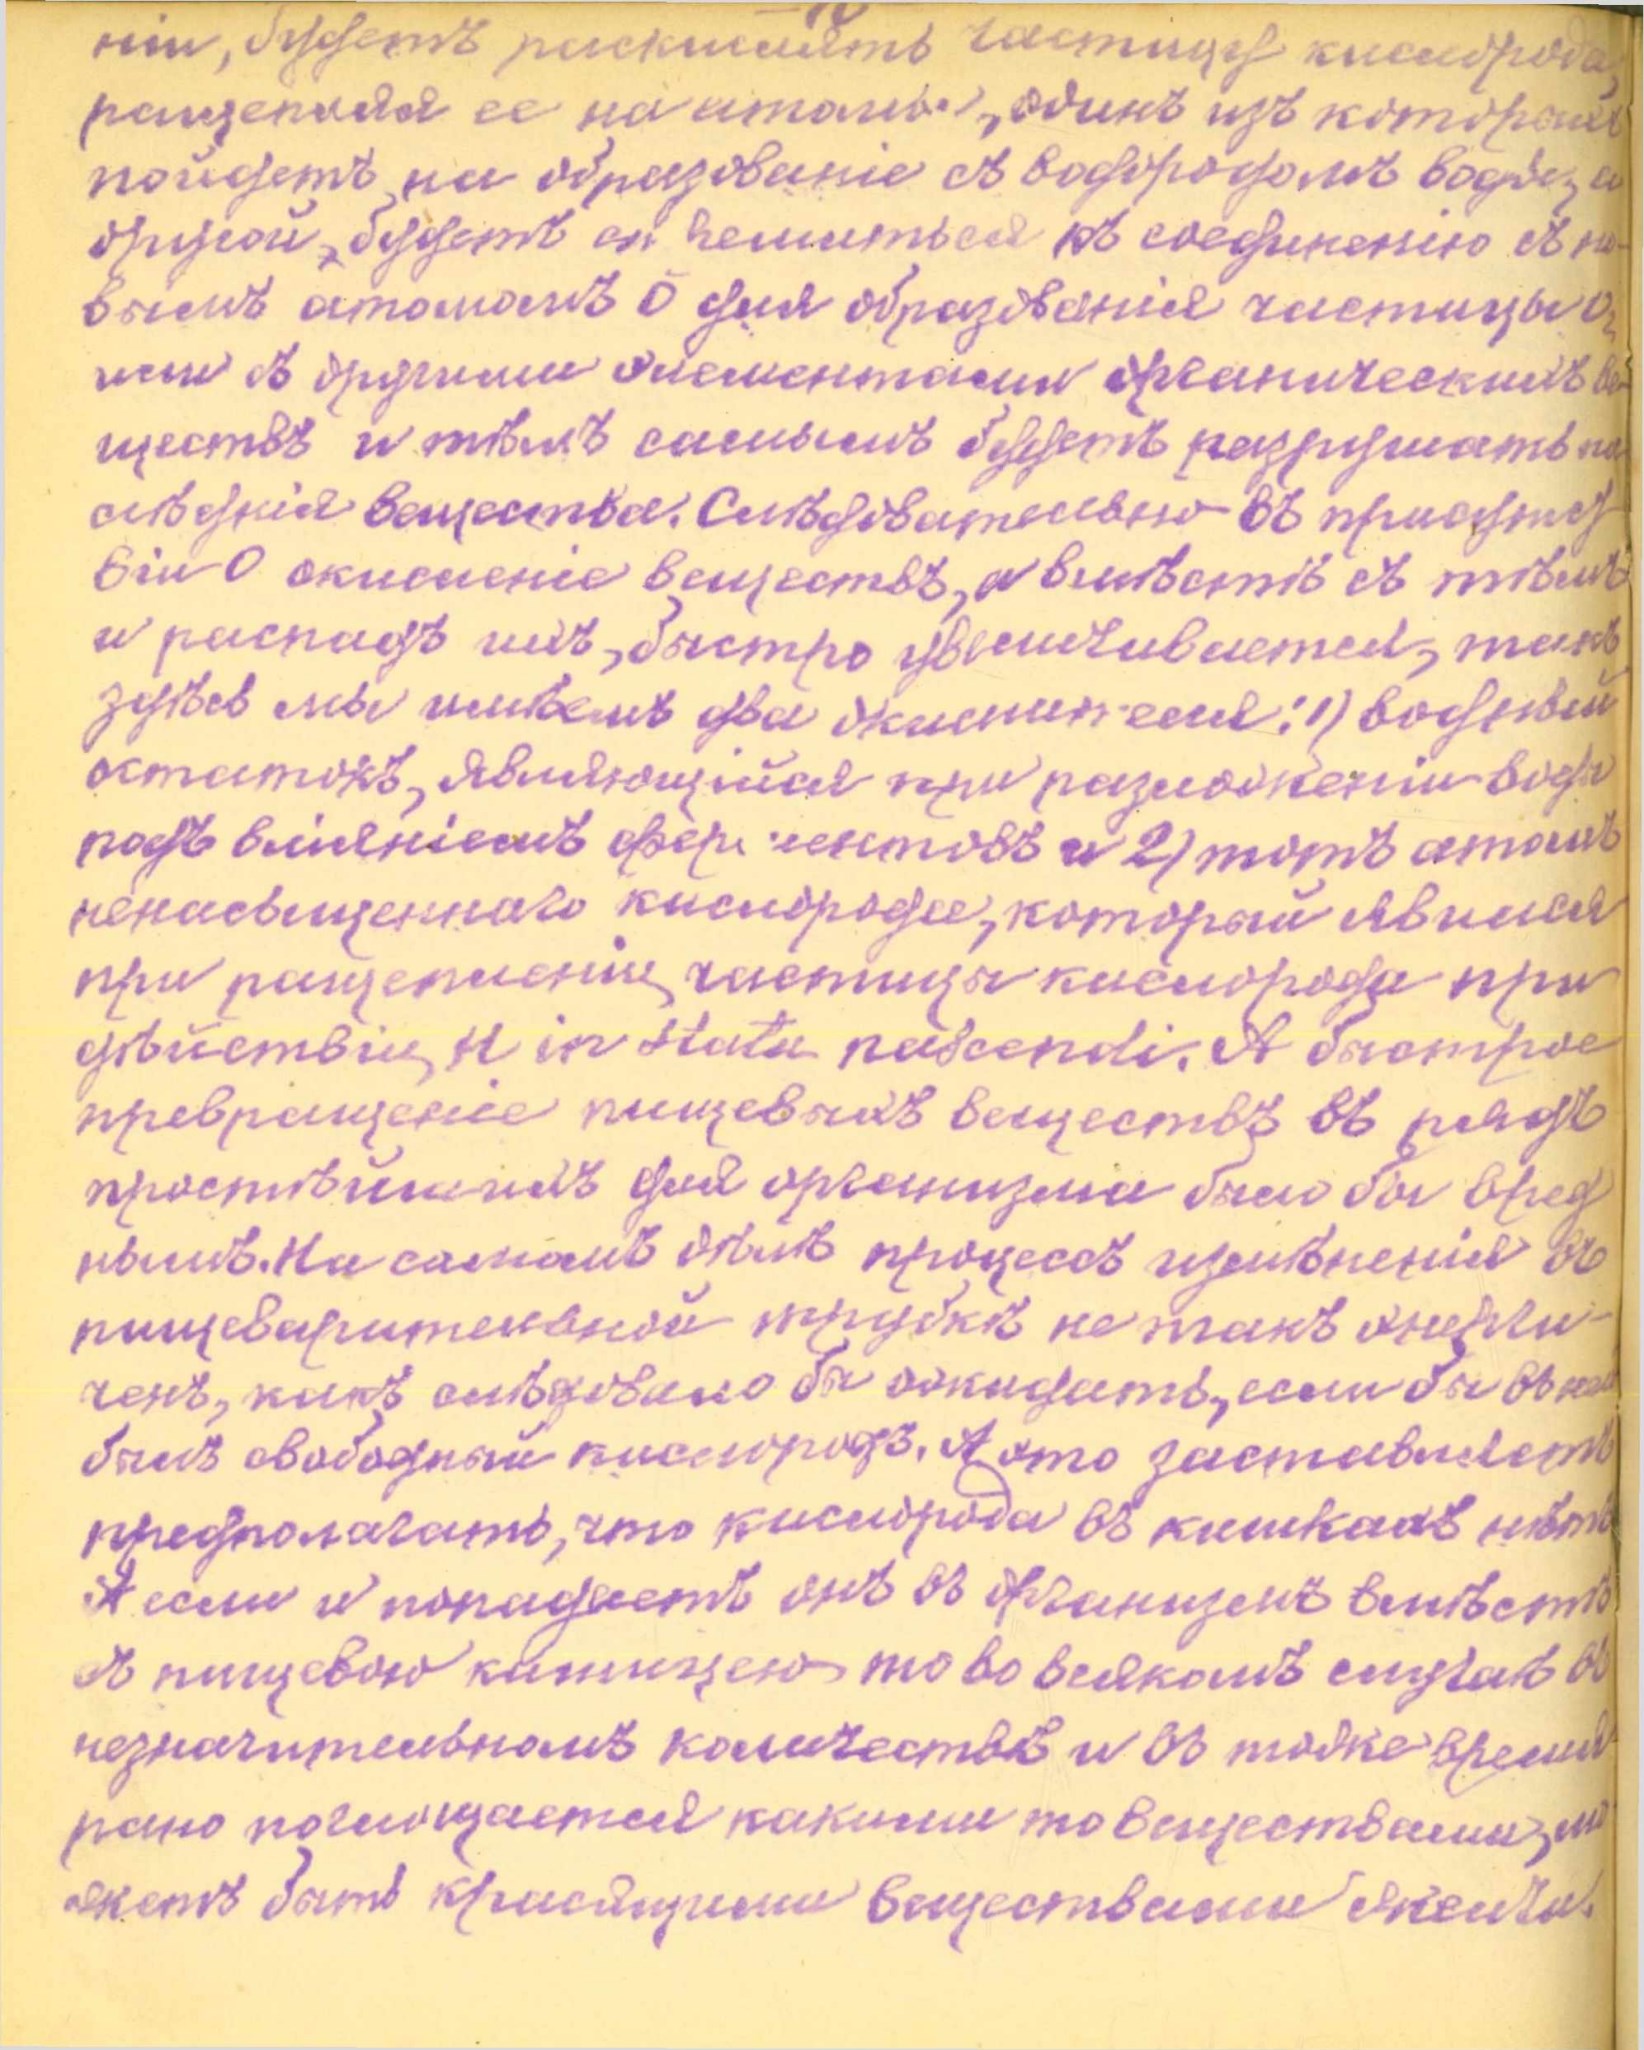 ніи, будетъ раскислять частицу кислорода,
ращепляя ее на атомы, одинъ изъ которыхъ
пойдетъ на образованіе съ водородомъ воды, а
другой, будетъ стремиться къ соединенію съ но-
вымъ атомомъ О для образованія частицы О₂
или съ другими элементами органическихъ ве-
ществъ и тѣмъ самымъ будетъ разрушать по-
слѣднія вещества. Слѣдовательно въ присутст
віи О окисленіе веществъ, а вмѣстѣ съ тѣмъ
и распадъ ихъ, быстро увеличивается, такъ
здѣсь мы имѣемъ два окислителя: 1) водный
остатокъ, являющійся при разложеніи воды
подъ вліяніемъ ферментовъ и 2) тотъ атомъ
ненасыщеннаго кислорода, который явился
при ращепленіи частицы кислорода при
дѣйствіи Н in statu nascendi. А быстрое
превращеніе пищевыхъ веществъ въ рядъ
простѣйшихъ для организма было бы вред
нымъ. На самомъ дѣлѣ процессъ измѣненія въ
пищеварительной трубкѣ не такъ энерги-
ченъ, какъ слѣдовало бы ожидать, если бы въ ней
былъ свободный кислородъ. А это заставляетъ
предполагать, что кислорода въ кишкахъ нѣтъ
А если и попадаетъ онъ въ организмъ вмѣстѣ
съ пищевою кашицею то во всякомъ случаѣ въ
незначительномъ количествѣ и въ тоже время
рано поглощается какими то веществами, мо-
жетъ быть красящими веществами желчи.